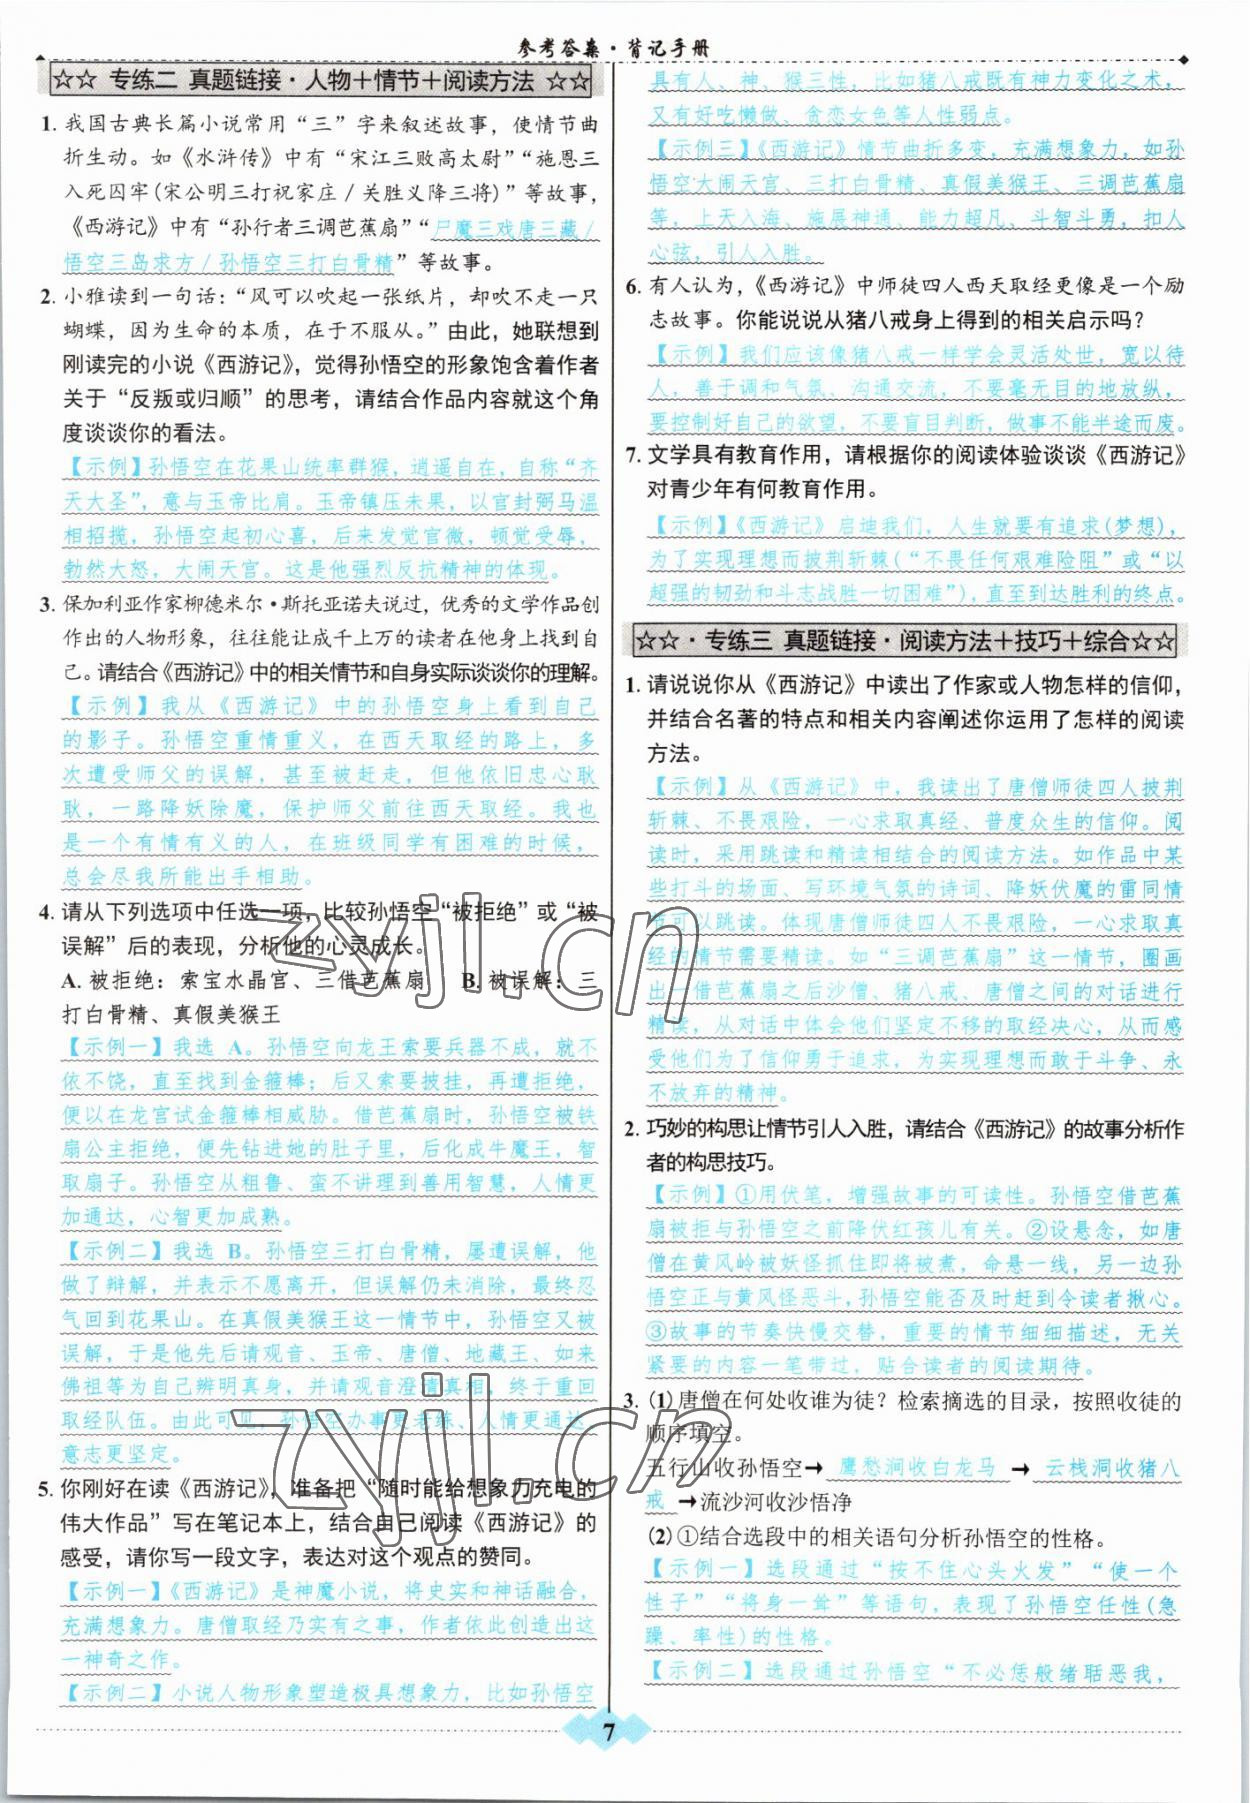 参考答案·背记手册
☆☆ 专练二 真题链接·人物＋情节＋阅读方法 ☆☆
1. 我国古典长篇小说常用“三”字来叙述故事，使情节曲
折生动。如《水浒传》中有“宋江三败高太尉”“施恩三
入死囚牢(宋公明三打祝家庄/关胜义降三将)”等故事，
《西游记》中有“孙行者三调芭蕉扇”“尸魔三戏唐三藏/
悟空三岛求方/孙悟空三打白骨精”等故事。
2. 小雅读到一句话：“风可以吹起一张纸片，却吹不走一只
蝴蝶，因为生命的本质，在于不服从。”由此，她联想到
刚读完的小说《西游记》，觉得孙悟空的形象饱含着作者
关于“反叛或归顺”的思考，请结合作品内容就这个角
度谈谈你的看法。
【示例】孙悟空在花果山统率群猴，逍遥自在，自称“齐
天大圣”，意与玉帝比肩。玉帝镇压未果，以官封弼马温
相招揽，孙悟空起初心喜，后来发觉官微，顿觉受辱，
勃然大怒，大闹天宫。这是他强烈反抗精神的体现。
3. 保加利亚作家柳德米尔·斯托亚诺夫说过，优秀的文学作品创
作出的人物形象，往往能让成千上万的读者在他身上找到自
己。请结合《西游记》中的相关情节和自身实际谈谈你的理解。
【示例】我从《西游记》中的孙悟空身上看到自己
的影子。孙悟空重情重义，在西天取经的路上，多
次遭受师父的误解，甚至被赶走，但他依旧忠心耿
耿，一路降妖除魔，保护师父前往西天取经。我也
是一个有情有义的人，在班级同学有困难的时候，
总会尽我所能出手相助。
4. 请从下列选项中任选一项，比较孙悟空“被拒绝”或“被
误解”后的表现，分析他的心灵成长。
A. 被拒绝：索宝水晶宫、三借芭蕉扇 B. 被误解：三
打白骨精、真假美猴王
【示例一】我选 A。孙悟空向龙王索要兵器不成，就不
依不饶，直至找到金箍棒；后又索要披挂，再遭拒绝，
便以在龙宫试金箍棒相威胁。借芭蕉扇时，孙悟空被铁
扇公主拒绝，便先钻进她的肚子里，后化成牛魔王，骗
取扇子。孙悟空从粗鲁、蛮不讲理到善用智慧，人情更
加通达，心智更加成熟。
【示例二】我选 B。孙悟空三打白骨精，屡遭误解，他
做了辩解，并表示不愿离开，但误解仍未消除，最终忍
气回到花果山。在真假美猴王这一情节中，孙悟空又被
误解，于是他先后请观音、玉帝、唐僧、地藏王、如来
佛祖等为自己辨明真身，并请观音澄清真相，终于重回
取经队伍。由此可见，孙悟空办事更老练、人情更通达、
意志更坚定。
5. 你刚好在读《西游记》，准备把“随时能给想象力充电的
伟大作品”写在笔记本上，结合自己阅读《西游记》的
感受，请你写一段文字，表达对这个观点的赞同。
【示例一】《西游记》是神魔小说，将史实和神话融合，
充满想象力。唐僧取经乃实有之事，作者依此创造出这
一神奇之作。
【示例二】小说人物形象塑造极具想象力，比如孙悟空
具有人、神、猴三性，比如猪八戒既有神力变化之术，
又有好吃懒做、贪恋女色等人性弱点。
【示例三】《西游记》情节曲折多变，充满想象力，如孙
悟空大闹天宫、三打白骨精、真假美猴王、三调芭蕉扇
等，上天入海、施展神通、能力超凡、斗智斗勇，扣人
心弦，引人入胜。
6. 有人认为，《西游记》中师徒四人西天取经更像是一个励
志故事。你能说说从猪八戒身上得到的相关启示吗？
【示例】我们应该像猪八戒一样学会灵活处世，宽以待
人，善于调和气氛、沟通交流，不要毫无目的地放纵，
要控制好自己的欲望，不要盲目判断，做事不能半途而废。
7. 文学具有教育作用，请根据你的阅读体验谈谈《西游记》
对青少年有何教育作用。
【示例】《西游记》启迪我们，人生就要有追求(梦想)，
为了实现理想而披荆斩棘(“不畏任何艰难险阻”或“以
超强的韧劲和斗志战胜一切困难”)，直至到达胜利的终点。
☆☆·专练三 真题链接·阅读方法＋技巧＋综合☆☆
1. 请说说你从《西游记》中读出了作家或人物怎样的信仰，
并结合名著的特点和相关内容阐述你运用了怎样的阅读
方法。
【示例】从《西游记》中，我读出了唐僧师徒四人披荆
斩棘、不畏艰险，一心求取真经、普度众生的信仰。阅
读时，采用跳读和精读相结合的阅读方法。如作品中某
些打斗的场面、写环境气氛的诗词、降妖伏魔的雷同情
节可以跳读。体现唐僧师徒四人不畏艰险，一心求取真
经的情节需要精读。如“三调芭蕉扇”这一情节，圈画
出一借芭蕉扇之后沙僧、猪八戒、唐僧之间的对话进行
精读，从对话中体会他们坚定不移的取经决心，从而感
受他们为了信仰勇于追求，为实现理想而敢于斗争、永
不放弃的精神。
2. 巧妙的构思让情节引人入胜，请结合《西游记》的故事分析作
者的构思技巧。
【示例】①用伏笔，增强故事的可读性。孙悟空借芭蕉
扇被拒与孙悟空之前降伏红孩儿有关。②设悬念，如唐
僧在黄风岭被妖怪抓住即将被煮，命悬一线，另一边孙
悟空正与黄风怪恶斗，孙悟空能否及时赶到令读者揪心。
③故事的节奏快慢交替，重要的情节细细描述，无关
紧要的内容一笔带过，贴合读者的阅读期待。
3. (1) 唐僧在何处收谁为徒？检索摘选的目录，按照收徒的
顺序填空。
五行山收孙悟空→ 鹰愁涧收白龙马 → 云栈洞收猪八
戒 →流沙河收沙悟净
(2) ①结合选段中的相关语句分析孙悟空的性格。
【示例一】选段通过“按不住心头火发”“使一个
性子”“将身一耸”等语句，表现了孙悟空任性(急
躁、率性)的性格。
【示例二】选段通过孙悟空“不必恁般绪聒恶我，
7
zyjl.cn
zyjl.cn